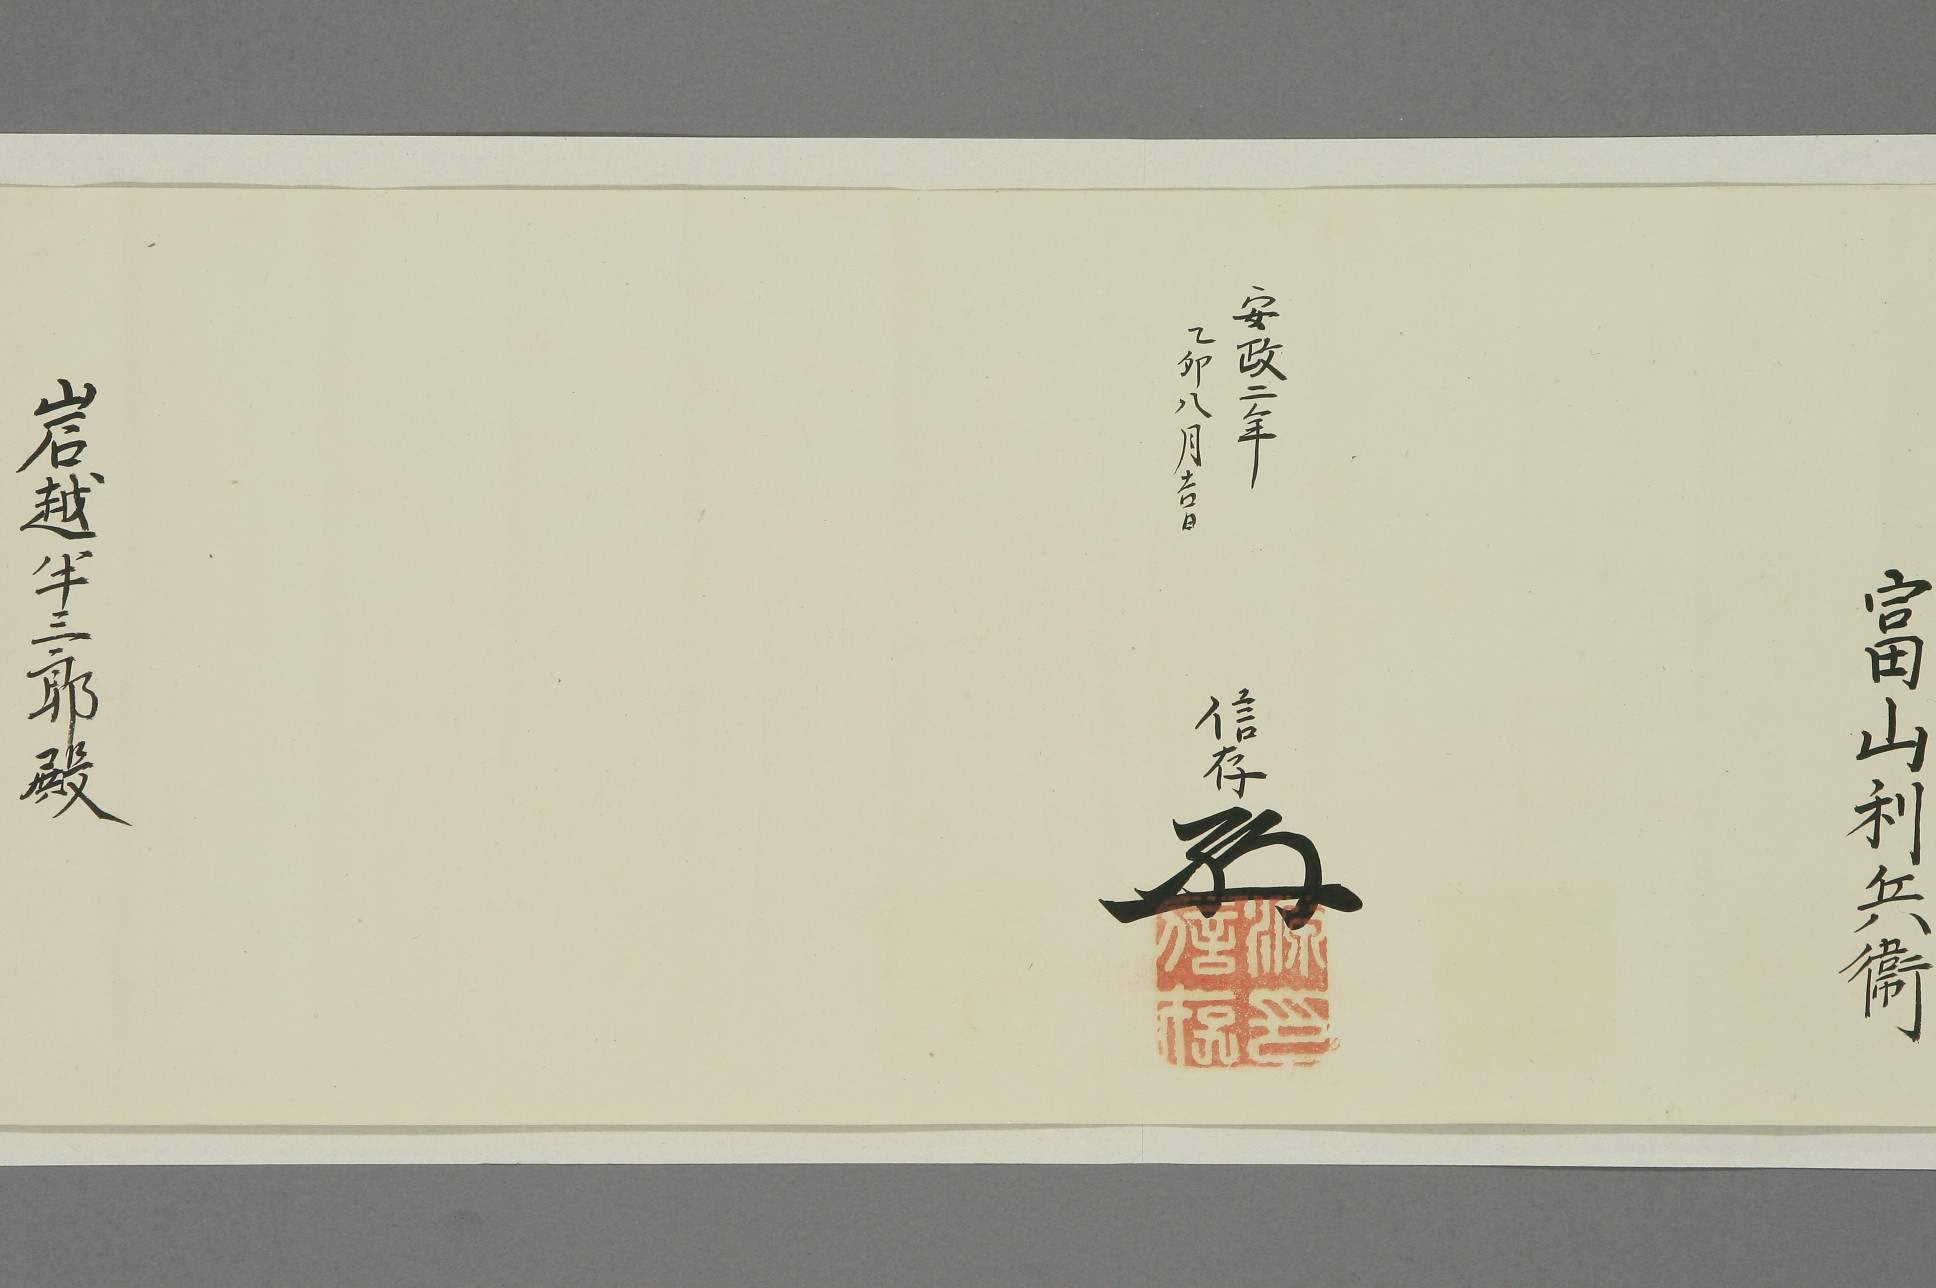 富山利兵衛
安政二年
乙卯八月吉日
信存
源信存印
岩越半三郎殿